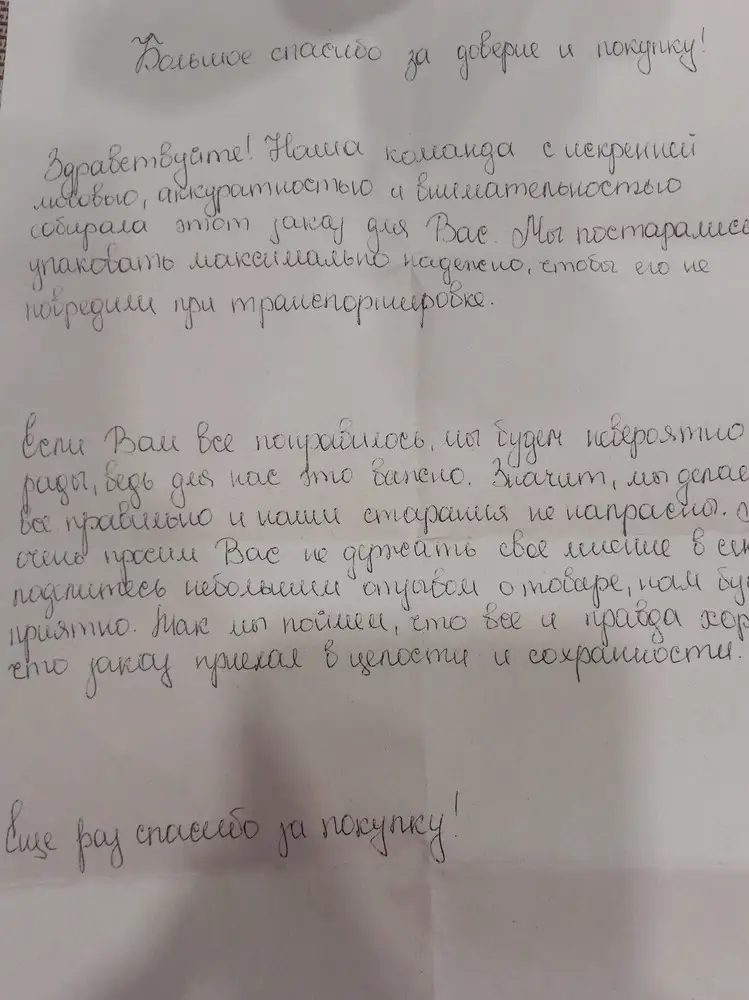 Большое спасибо за доверие и покупку!
Здравствуйте! Наша команда с искренней
любовью, аккуратностью и внимательностью
собирала этот заказ для Вас. Мы постарались
упаковать максимально надежно, чтобы его не
повредили при транспортировке.
Если Вам все понравилось, мы будем невероятно
рады, ведь для нас это важно. Значит, мы делае
все правильно и наши старания не напрасны.
очень просим Вас не держать свое мнение в сек
поделитесь небольшим отзывом о товаре, нам бу
приятно. Так мы поймем, что все и правда хор
что заказ приехал в целости и сохранности.
Еще раз спасибо за покупку!